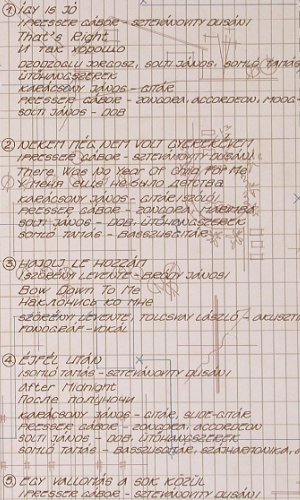 ① ÍGY IS JÓ
(PRESSER GÁBOR - SZTEVANOVITY DUSÁN)
That's Right
И так хорошо
DZODZOGLU JORGOSZ, SOLTI JÁNOS, SOMLÓ TAMÁS
ÜTŐHANGSZEREK
KARÁCSONY JÁNOS - GITÁR
PRESSER GÁBOR - ZONGORA, ACCORDEON, MOOG
SOLTI JÁNOS - DOB
② NEKEM MÉG NEM VOLT GYEREKÉVEM
(PRESSER GÁBOR - SZTEVANOVITY DUSÁN)
There Was No Year Of Child For Me
У меня еще не было детства
KARÁCSONY JÁNOS - GITÁR (SZÓLÓ)
PRESSER GÁBOR - ZONGORA, MARIMBA
SOLTI JÁNOS - DOB, ÜTŐHANGSZEREK
SOMLÓ TAMÁS - BASSZUSGITÁR
③ HAJOLJ LE HOZZÁM
(SZÖRÉNYI LEVENTE - BRÓDY JÁNOS)
Bow Down To Me
Наклонись ко мне
SZÖRÉNYI LEVENTE, TOLCSVAY LÁSZLÓ - AKUSZTI
FONOGRÁF - VOKÁL
④ ÉJFÉL UTÁN
(SOMLÓ TAMÁS - SZTEVANOVITY DUSÁN)
After Midnight
После полуночи
KARÁCSONY JÁNOS - GITÁR, SLIDE-GITÁR
PRESSER GÁBOR - ZONGORA, ACCORDEON
SOLTI JÁNOS - DOB, ÜTŐHANGSZEREK
SOMLÓ TAMÁS - BASSZUSGITÁR, SZÁJHARMONIKA, A
⑤ EGY VALLOMÁS A SOK KÖZÜL
(PRESSER GÁBOR - SZTEVANOVITY DUSÁN)